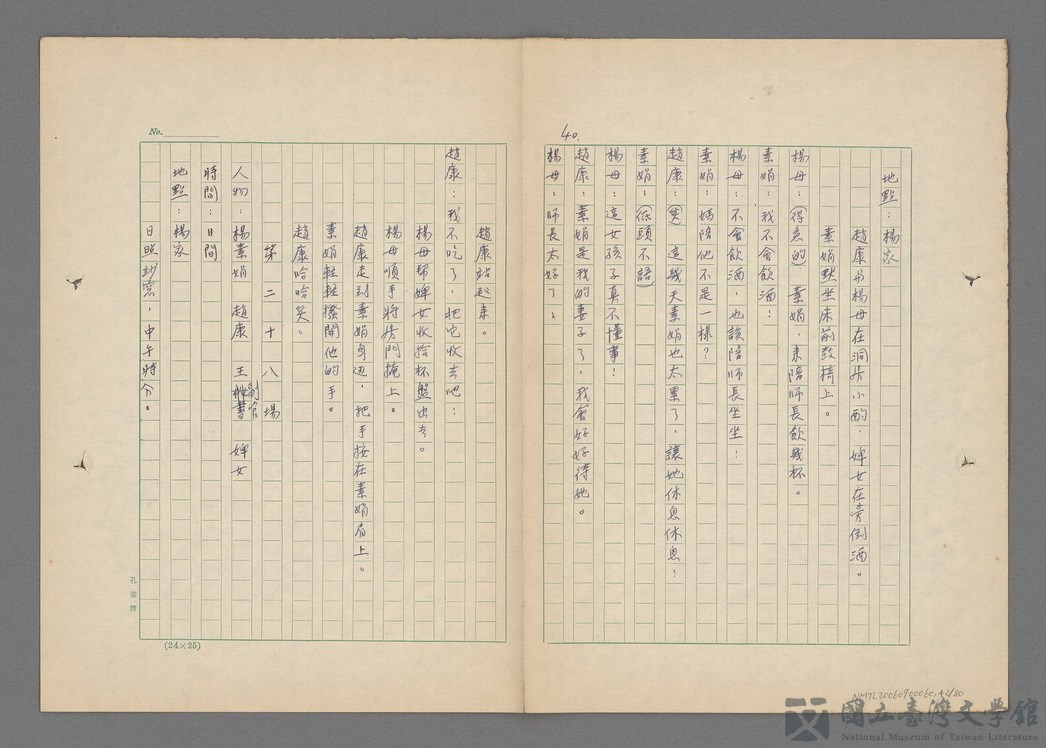 40.
地點：楊家
趙康与楊母在洞房小酌．婢女在旁倒酒。
素娟默坐床前發椅上。
楊母：(得意的) 素娟，来陪師長飲幾杯。
素娟：我不會飲酒！
楊母：不會飲酒，也該陪師長坐坐！
素娟：媽陪他不是一樣？
趙康：(笑) 這幾天素娟也太累了，讓她休息休息！
素娟：(低頭不語)
楊母：這女孩子真不懂事！
趙康：素娟是我的妻子了，我會好好待她。
楊母：師長太好了！
趙康站起来。
趙康：我不吃了，把它收去吧！
楊母帮婢女收拾杯盤出去。
楊母順手將房門掩上。
趙康走到素娟身边，把手按在素娟肩上。
素娟輕輕撥開他的手。
趙康哈哈笑。
第二十八場
人物：楊素娟 趙康 王副官 婢女
時間：日間
地點：楊家
日照紗窓，中午時分。
No.
孔雀牌
(24×25)
NMTL20060900060,42/80
國立臺灣文學館
National Museum of Taiwan Literature